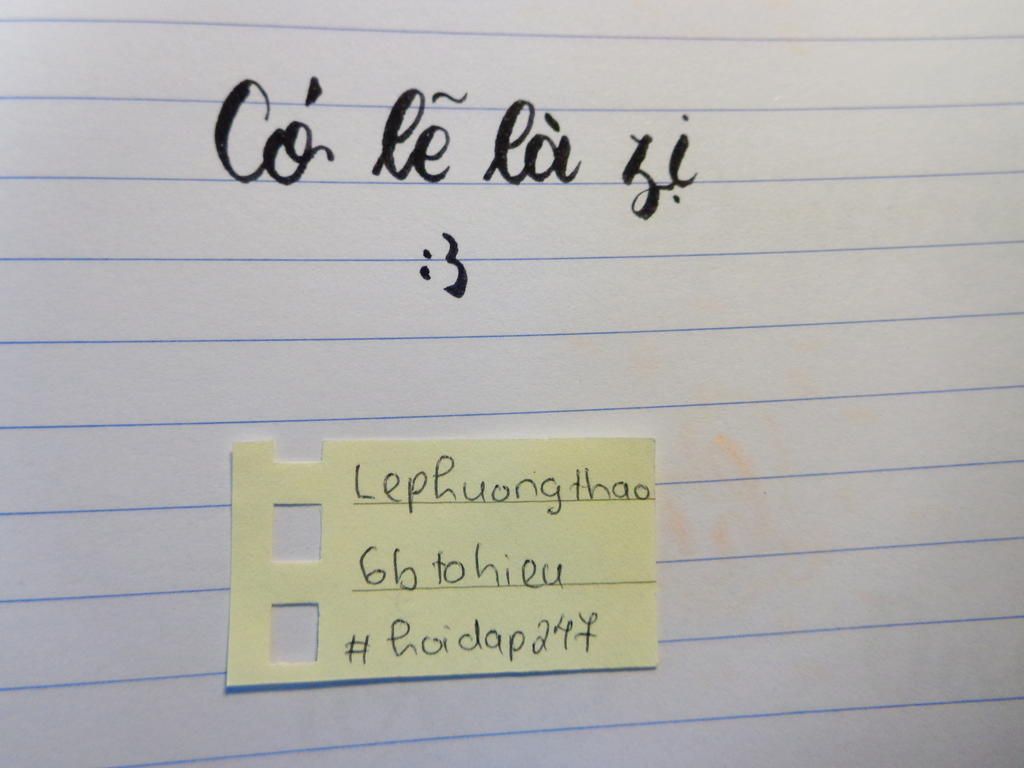 Có lẽ là zị
:3
Lephuongthao
6b tohieu
#hoidap247